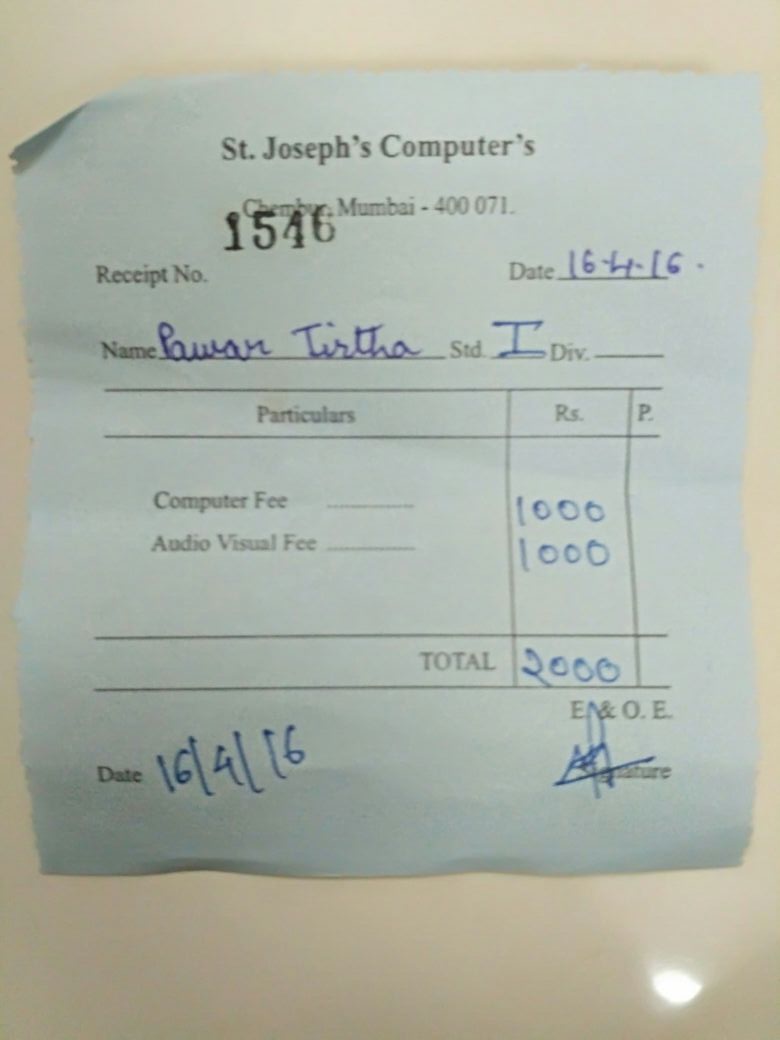 St. Joseph's Computer's
Chembur, Mumbai - 400 071.
1546
Receipt No.
Date 16-4-16.
Name Pawar Tirtha Std. I Div.
Particulars Rs. P.
Computer Fee 1000
Audio Visual Fee 1000
TOTAL 2000
E. & O. E.
Date 16/4/16 Signature